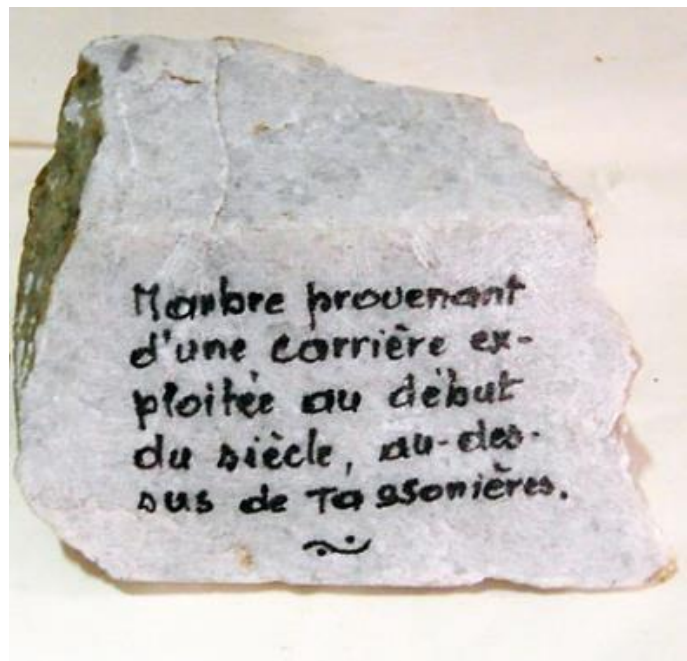 Marbre provenant
d'une carrière ex-
ploitée au début
du siècle, au-des-
sus de Tassonières.